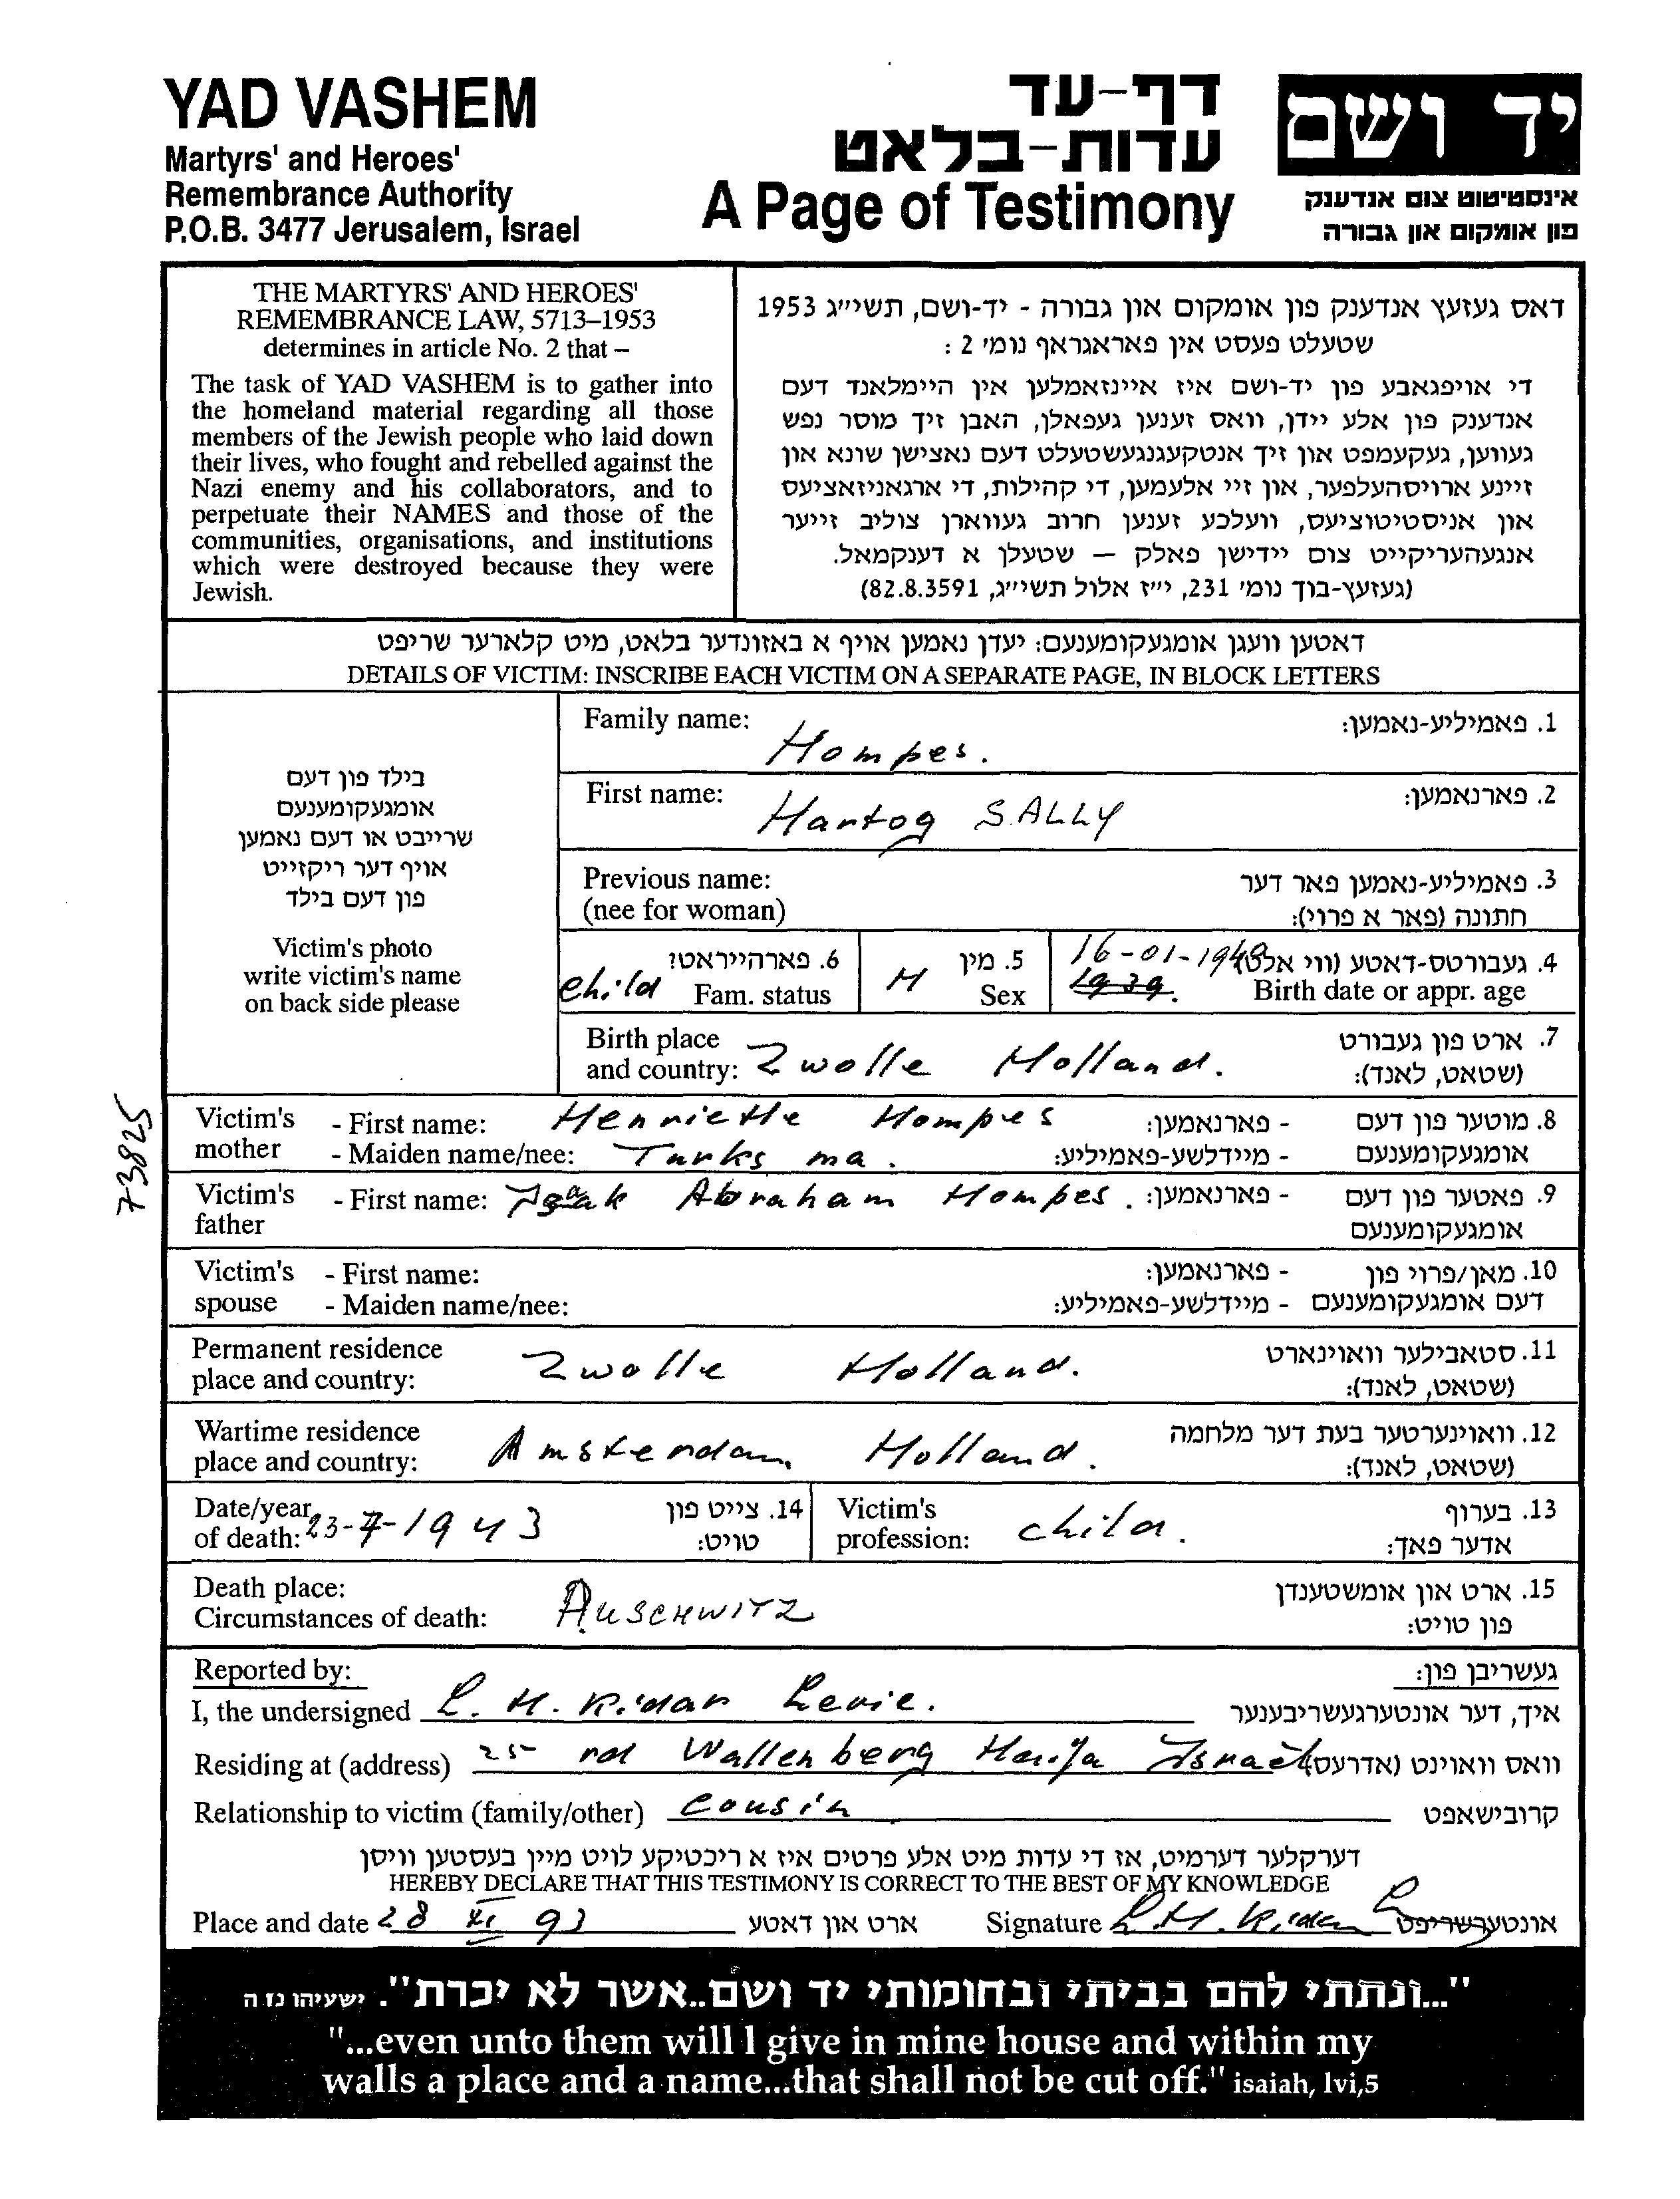 YAD VASHEM
Martyrs' and Heroes'
Remembrance Authority
P.O.B. 3477 Jerusalem, Israel
דף-עד
עדות-בלאט
A Page of Testimony
יד ושם
אינסטיטוט צום אנדענק
פון אומקום און גבורה
THE MARTYRS' AND HEROES'
REMEMBRANCE LAW, 5713–1953
determines in article No. 2 that –
The task of YAD VASHEM is to gather into
the homeland material regarding all those
members of the Jewish people who laid down
their lives, who fought and rebelled against the
Nazi enemy and his collaborators, and to
perpetuate their NAMES and those of the
communities, organisations, and institutions
which were destroyed because they were
Jewish.
דאס געזעץ אנדענק פון אומקום און גבורה - יד-ושם, תשי״ג 1953
שטעלט פעסט אין פאראגראף נומ׳ 2 :
די אויפגאבע פון יד-ושם איז איינזאמלען אין היימלאנד דעם
אנדענק פון אלע יידן, וואס זענען געפאלן, האבן זיך מוסר נפש
געווען, געקעמפט און זיך אנטקעגנגעשטעלט דעם נאצישן שונא און
זיינע ארויסהעלפער, און זיי אלעמען, די קהילות, די ארגאניזאציעס
און אניסטיטוציעס, וועלכע זענען חרוב געווארן צוליב זייער
אנגעהעריקייט צום יידישן פאלק – שטעלן א דענקמאל.
(געזעץ-בוך נומ׳ 231, י״ז אלול תשי״ג, 82.8.3591)
דאטען וועגן אומגעקומענעם: יעדן נאמען אויף א באזונדער בלאט, מיט קלארער שריפט
DETAILS OF VICTIM: INSCRIBE EACH VICTIM ON A SEPARATE PAGE, IN BLOCK LETTERS
בילד פון דעם
אומגעקומענעם
שרייבט או דעם נאמען
אויף דער ריקזייט
פון דעם בילד
Victim's photo
write victim's name
on back side please
Family name: Hompes. 1. פאמיליע-נאמען:
First name: Hartog SALLY 2. פארנאמען:
Previous name: 3. פאמיליע-נאמען פאר דער
(nee for woman) חתונה (פאר א פרוי):
6. פארהייראט? 5. מין 16-01-1940 4. געבורטס-דאטע (ווי אלט)
child Fam. status M Sex 1939. Birth date or appr. age
Birth place 7. ארט פון געבורט
and country: Zwolle Holland. (שטאט, לאנד):
73825
Victim's - First name: Henriette Hompes - פארנאמען: 8. מוטער פון דעם
mother - Maiden name/nee: Turksma. - מיידלשע-פאמיליע: אומגעקומענעם
Victim's - First name: Isaak Abraham Hompes. - פארנאמען: 9. פאטער פון דעם
father אומגעקומענעם
Victim's - First name: - פארנאמען: 10. מאן/פרוי פון
spouse - Maiden name/nee: - מיידלשע-פאמיליע: דעם אומגעקומענעם
Permanent residence 11. סטאבילער וואוינארט
place and country: Zwolle Holland. (שטאט, לאנד):
Wartime residence 12. וואוינערטער בעת דער מלחמה
place and country: Amsterdam Holland. (שטאט, לאנד):
Date/year 14. צייט פון Victim's 13. בערוף
of death: 23-7-1943 טויט: profession: child. אדער פאך:
Death place: 15. ארט און אומשטענדן
Circumstances of death: AUSCHWITZ פון טויט:
Reported by: געשריבן פון:
I, the undersigned L. H. Kidar Levie. איך, דער אונטערגעשריבענער
Residing at (address) 25 rd Wallenberg Haifa Israel וואס וואוינט (אדרעס)
Relationship to victim (family/other) cousin קרובישאפט
דערקלער דערמיט, אז די עדות מיט אלע פרטים איז א ריכטיקע לויט מיין בעסטען וויסן
HEREBY DECLARE THAT THIS TESTIMONY IS CORRECT TO THE BEST OF MY KNOWLEDGE
Place and date 28 XI 93 ארט און דאטע Signature L.H. Kidar L אונטערשריפט
"...ונתתי להם בביתי ובחומותי יד ושם..אשר לא יכרת". ישעיהו נז ה
"...even unto them will I give in mine house and within my
walls a place and a name...that shall not be cut off." isaiah, lvi,5